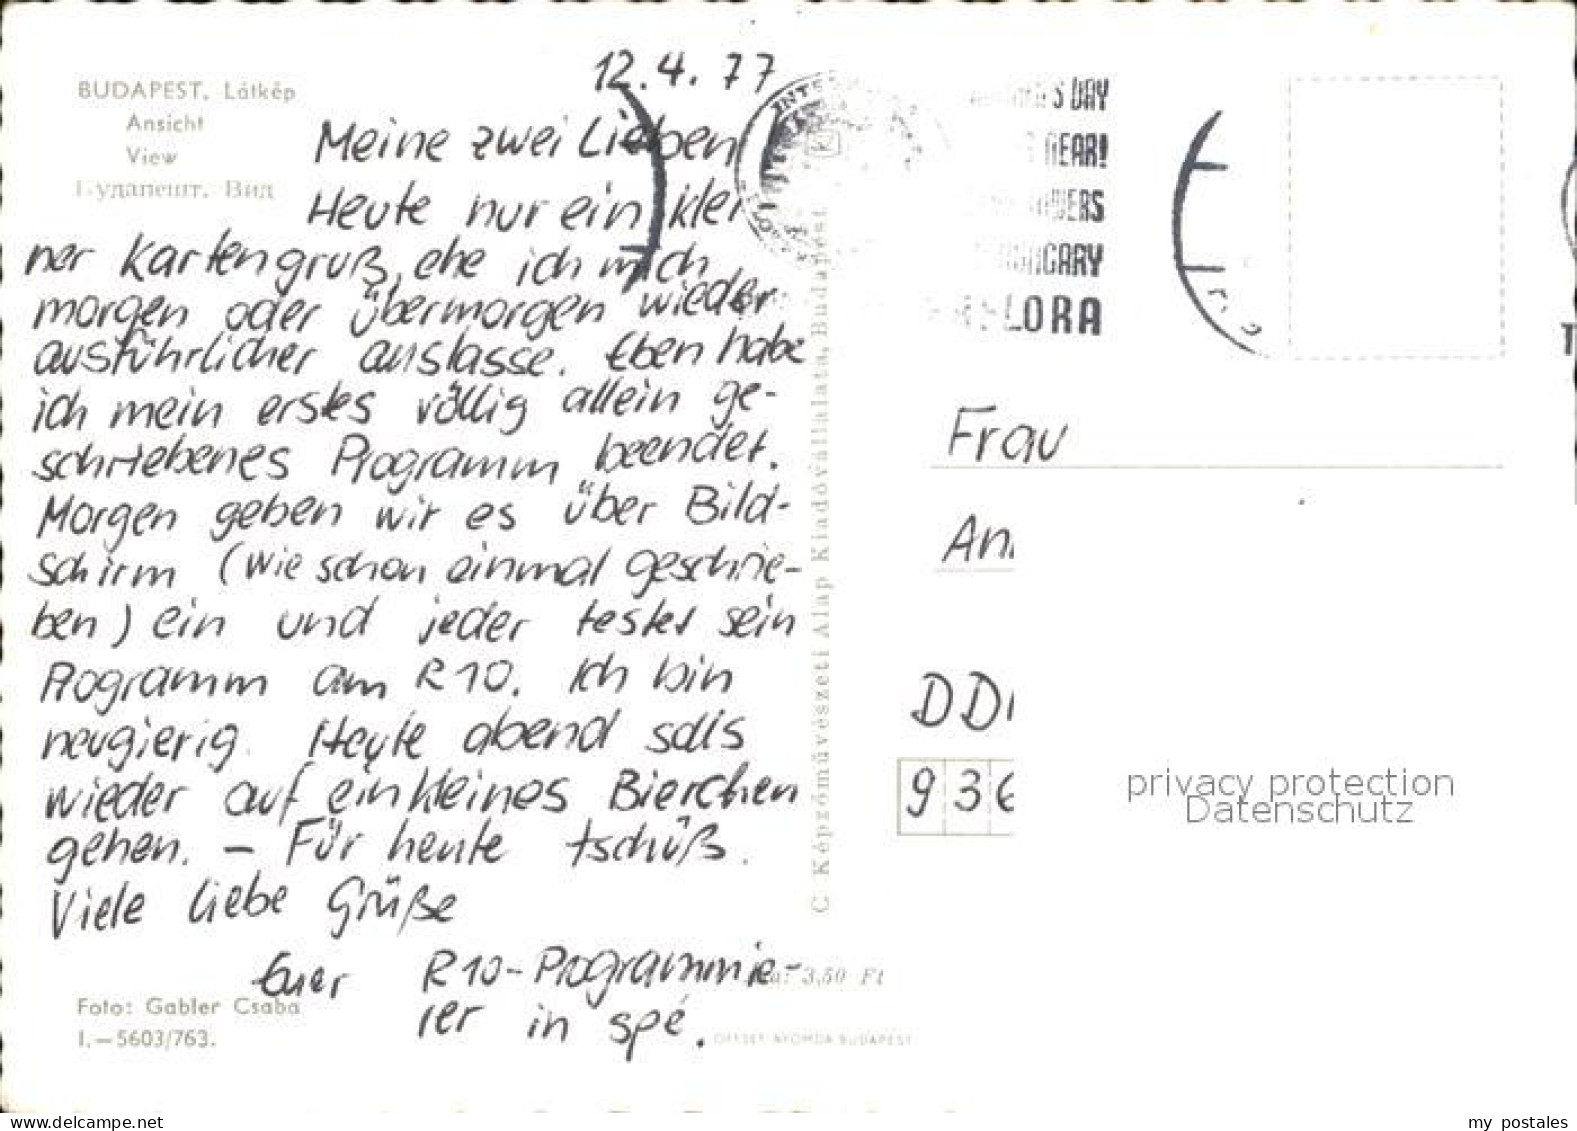 12.4.77
BUDAPEST. Látkép
Ansicht
View
Будапешт. Вид
Meine zwei Lieben
Heute nur ein klei
ner Kartengruß, ehe ich mich
morgen oder übermorgen wieder
ausführlicher auslasse. Eben habe
ich mein erstes völlig allein ge-
schriebenes Programm beendet.
Morgen geben wir es über Bild-
schirm (wie schon einmal geschrie-
ben) ein und jeder testet sein
Programm am R10. Ich bin
neugierig. Heute abend solls
wieder auf ein kleines Bierchen
gehen. – Für heute tschüß.
Viele liebe Grüße
Euer R10-Programmie-
rer in spé.
Foto: Gabler Csaba
I.—5603/763.
C Képzőművészeti Alap Kiadóvállalata, Budapest
3,50 Ft
OFFSET NYOMDA BUDAPEST
S DAY
NEAR!
HUNGARY
LORA
Frau
An
DD
936
privacy protection
Datenschutz
www.delcampe.net
my postales